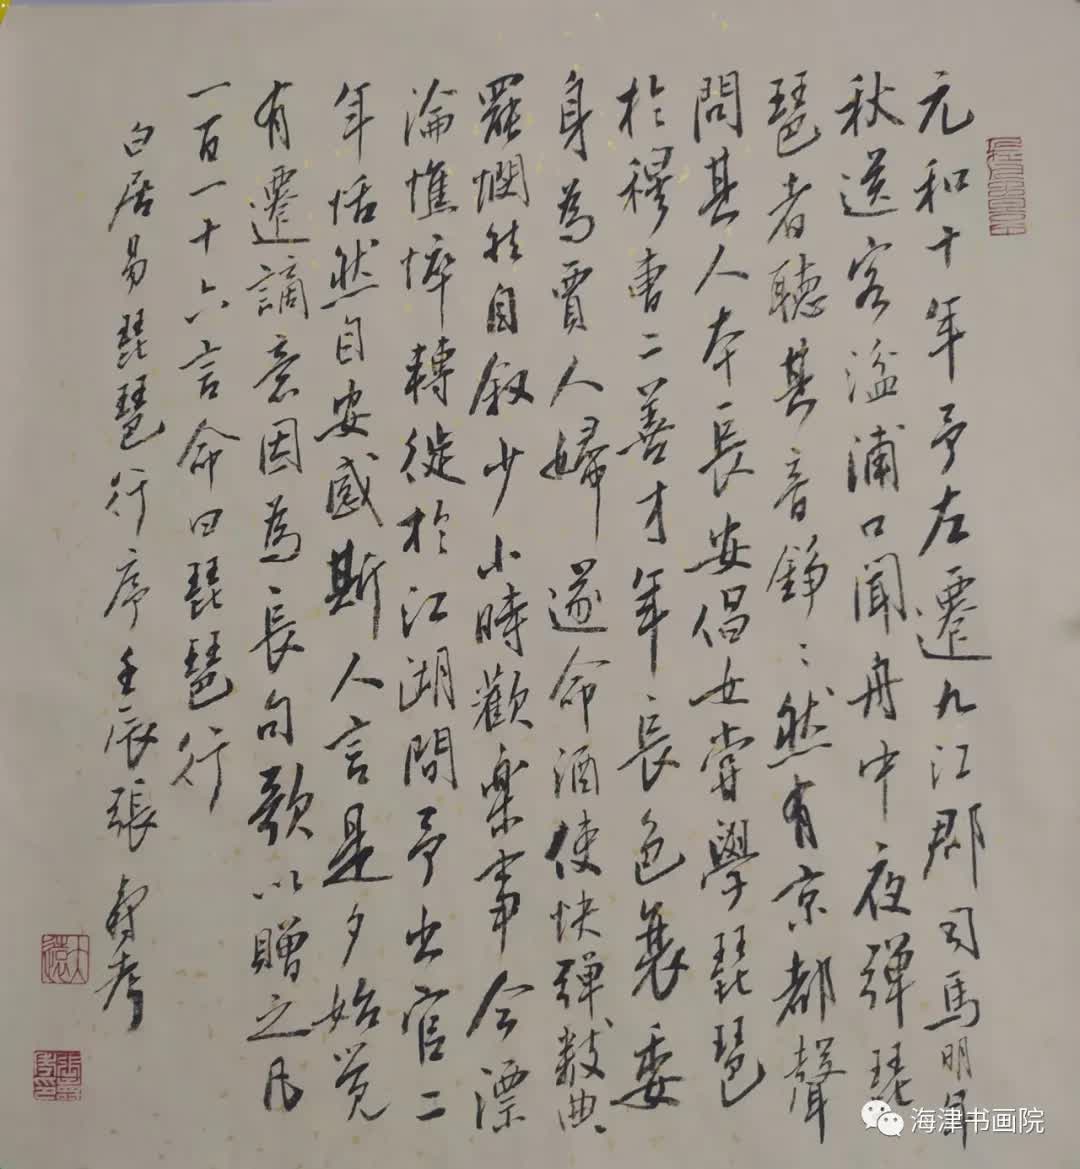 元和十年予左遷九江郡司馬明年
秋送客湓浦口聞舟中夜彈琵
琶者聽其音錚〻然有京都聲
問其人本長安倡女嘗學琵琶
於穆曹二善才年長色衰委
身為賈人婦遂命酒使快彈數曲〻
罷憫然自叙少小時歡樂事今漂
淪憔悴轉徙於江湖間予出官二
年恬然自安感斯人言是夕始觉
有遷謫意因為長句歌以贈之凡
一百一十六言命曰琵琶行
白居易琵琶行序壬辰張壽考
海津书画院